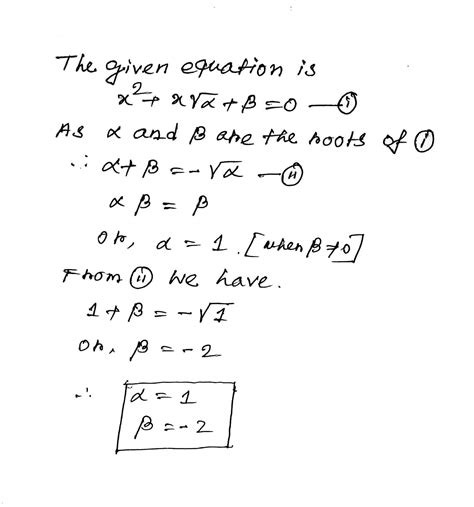 The given equation is
x² + x√α + β = 0 — (i)
As α and β are the roots of (i)
∴ α + β = - √α — (ii)
α β = β
or, α = 1. [when β ≠ 0]
From (ii) we have.
1 + β = - √1
or, β = - 2
∴ α = 1
β = - 2